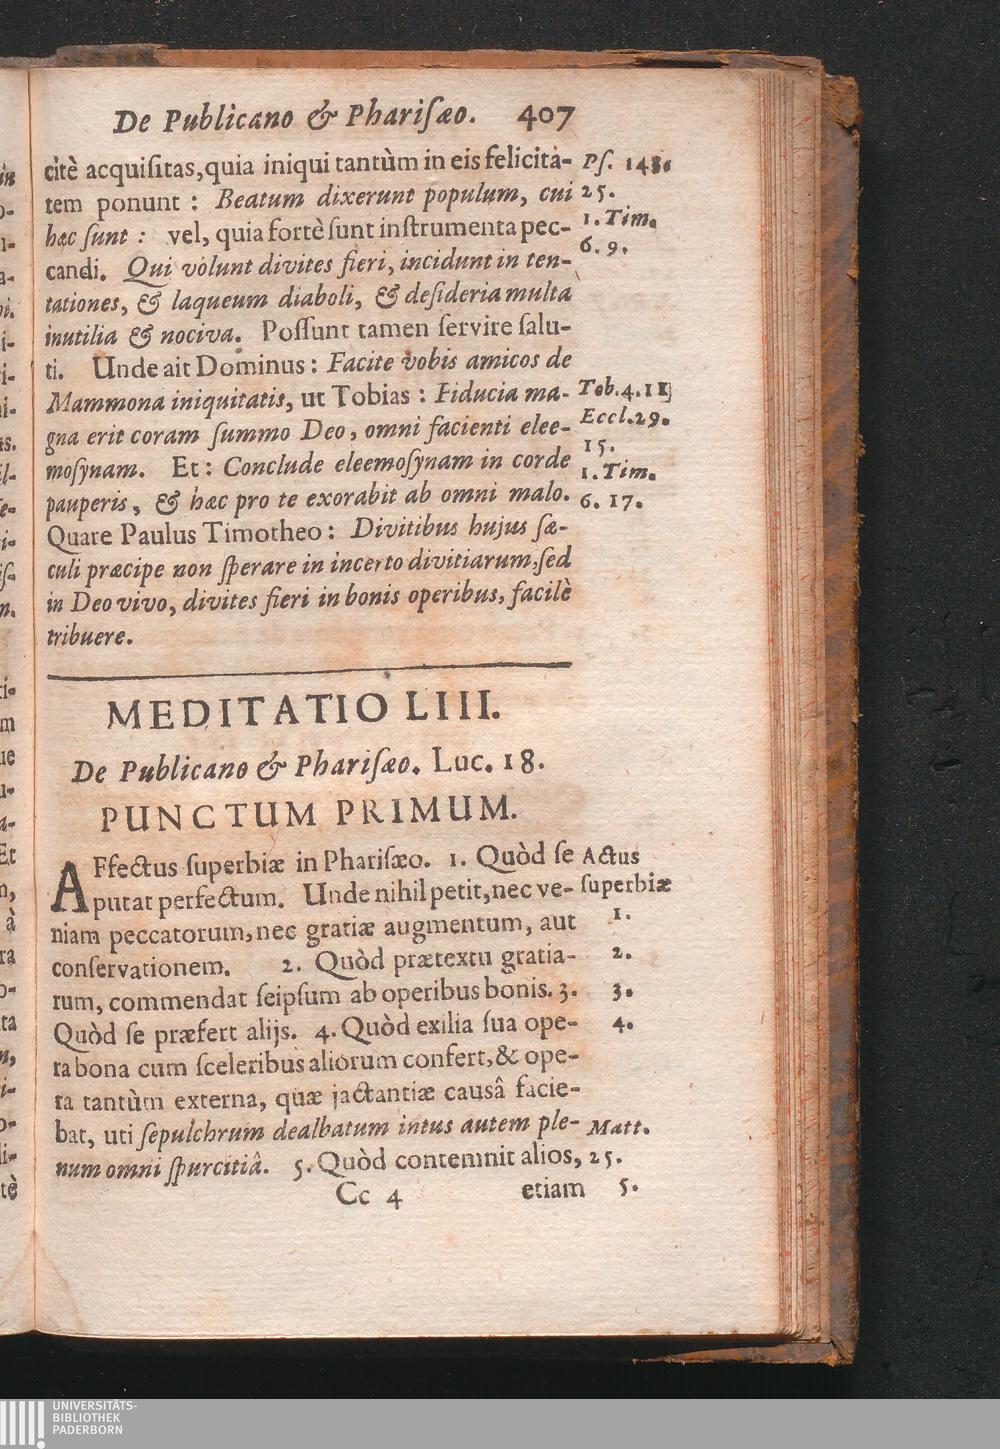 De Publicano & Phariſæo. 407
citè acquiſitas, quia iniqui tantùm in eis felicita-
tem ponunt : Beatum dixerunt populum, cui
hæc ſunt : vel, quia fortè ſunt inſtrumenta pec-
candi. Qui volunt divites fieri, incidunt in ten-
tationes, & laqueum diaboli, & deſideria multa
inutilia & nociva. Poſſunt tamen ſervire ſalu-
ti. Unde ait Dominus : Facite vobis amicos de
Mammona iniquitatis, ut Tobias : Fiducia ma-
gna erit coram ſummo Deo, omni facienti elee-
moſynam. Et : Conclude eleemoſynam in corde
pauperis, & hæc pro te exorabit ab omni malo.
Quare Paulus Timotheo : Divitibus hujus ſæ-
culi præcipe non ſperare in incerto divitiarum, ſed
in Deo vivo, divites fieri in bonis operibus, facilè
tribuere.
Pſ. 143.
25.
1. Tim.
6. 9.
Tob. 4. 11
Eccl. 29.
15.
1. Tim.
6. 17.
MEDITATIO LIII.
De Publicano & Phariſæo. Luc. 18.
PUNCTUM PRIMUM.
AFfectus ſuperbiæ in Phariſæo. 1. Quòd ſe
putat perfectum. Unde nihil petit, nec ve-
niam peccatorum, nec gratiæ augmentum, aut
conſervationem. 2. Quòd prætextu gratia-
rum, commendat ſeipſum ab operibus bonis. 3.
Quòd ſe præfert alijs. 4. Quòd exilia ſua ope-
ra bona cum ſceleribus aliorum confert, & ope-
ra tantùm externa, quæ jactantiæ causâ facie-
bat, uti ſepulchrum dealbatum intus autem ple-
num omni ſpurcitiâ. 5. Quòd contemnit alios,
Actus
ſuperbiæ
1.
2.
3.
4.
Matt.
25.
5.
Cc 4 etiam
UNIVERSITÄTS-
BIBLIOTHEK
PADERBORN